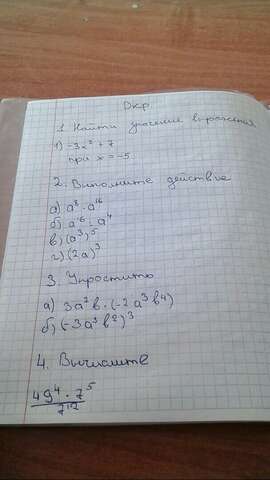 Дкр
1. Найти значение выражения
1) -3x² + 7
при x = -5
2. Выполните действие
а) a⁸ · a¹⁶
б) a¹⁶ : a⁴
в) (a³)⁵
г) (2a)³
3. Упростить
а) 3a²b · (-2a³b⁴)
б) (-3a³b²)³
4. Вычислите
49⁴ · 7⁵
7¹²